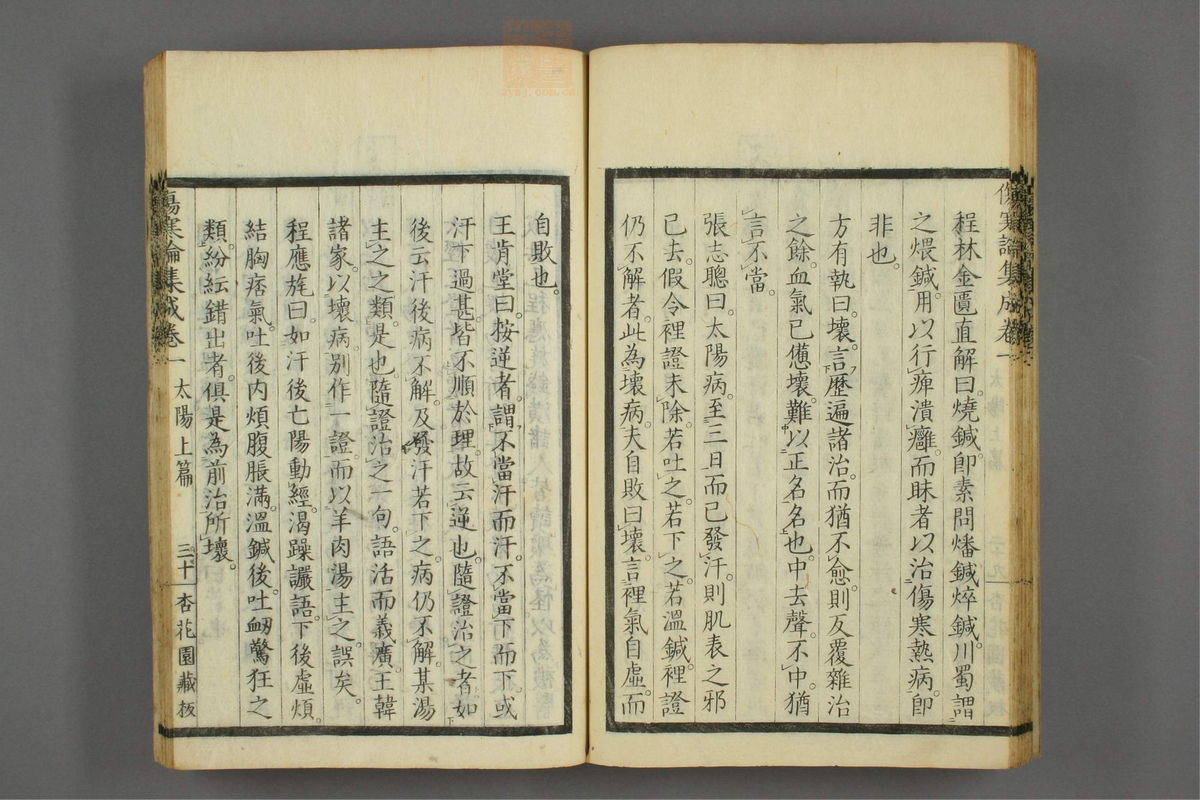 傷寒論集成卷一
程林金匱直解曰燒鍼卽素問燔鍼焠鍼川蜀謂
之煨鍼用以行痺潰癰而昧者以治傷寒熱病卽
非也
方有執曰壞言歷遍諸治而猶不愈則反覆雜治
之餘血氣已憊壞難以正名名也中去聲不中猶
言不當
張志聰曰太陽病至三日而已發汗則肌表之邪
已去假令裡證未除若吐之若下之若溫鍼裡證
仍不解者此為壞病夫自敗曰壞言裡氣自虛而
自敗也
王肯堂曰按逆者謂不當汗而汗不當下而下或
汗下過甚皆不順於理故云逆也隨證治之者如
後云汗後病不解及發汗若下之病仍不解某湯
主之之類是也隨證治之一句語活而義廣王韓
諸家以壞病別作一證而以羊肉湯主之誤矣
程應旄曰如汗後亡陽動經渴躁讝語下後虛煩
結胸痞氣吐後內煩腹脹滿溫鍼後吐衂驚狂之
類紛紜錯出者俱是為前治所壞
傷寒論集成卷一 太陽上篇 三十 杏花園藏板